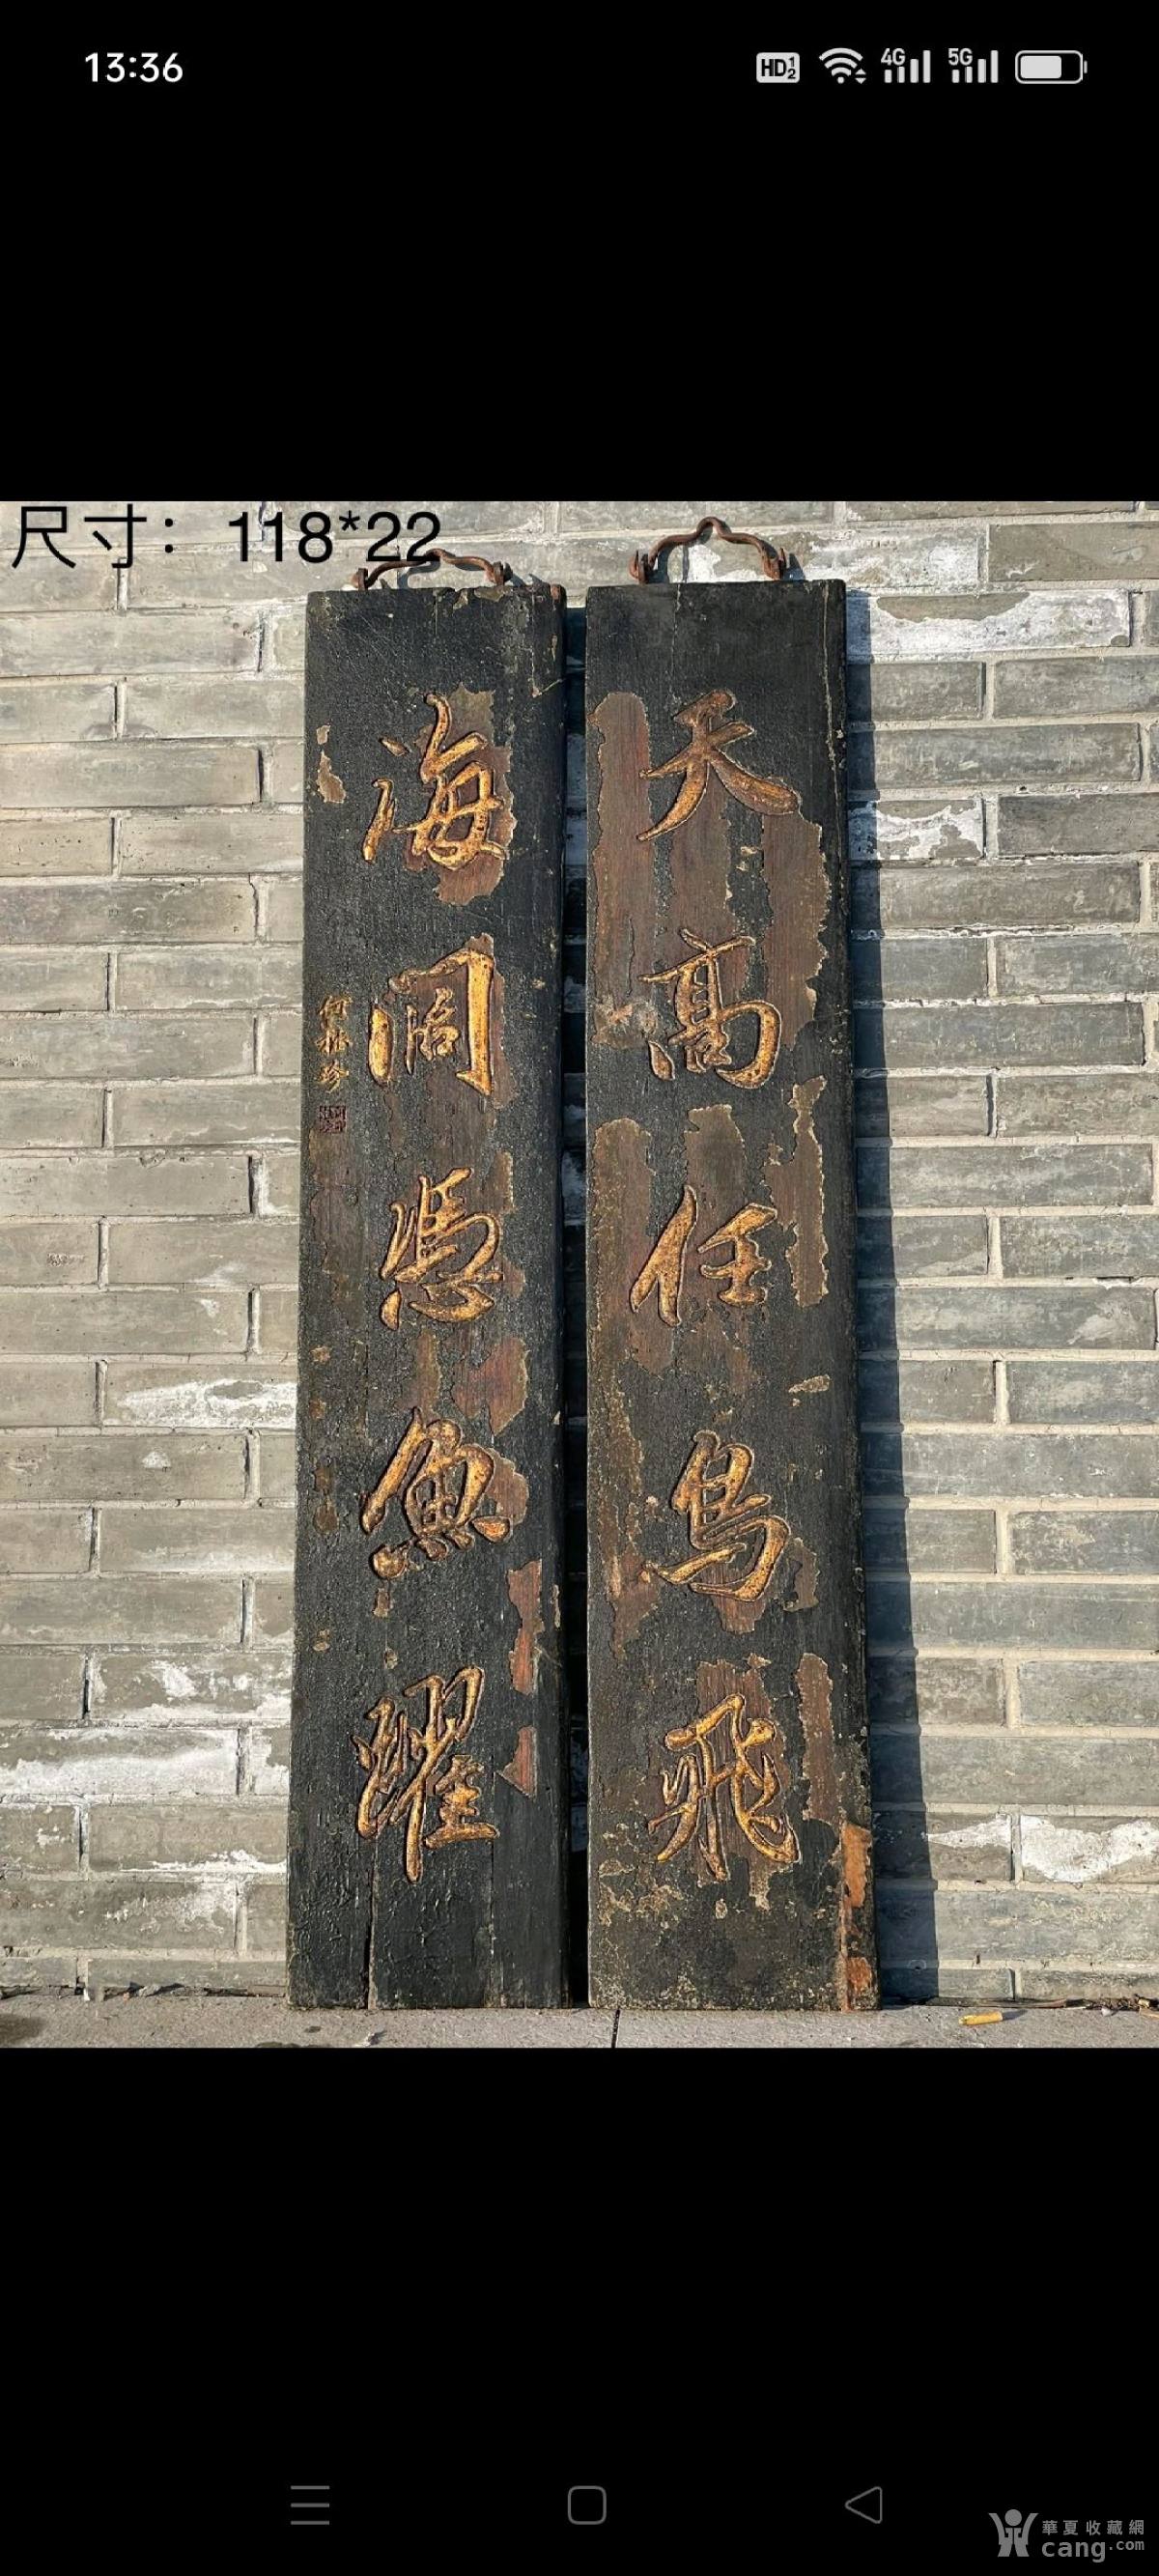 13:36
HD 1 2
4G
5G
尺寸：118*22
天高任鳥飛
海闊憑魚躍
華夏收藏網
cang.com